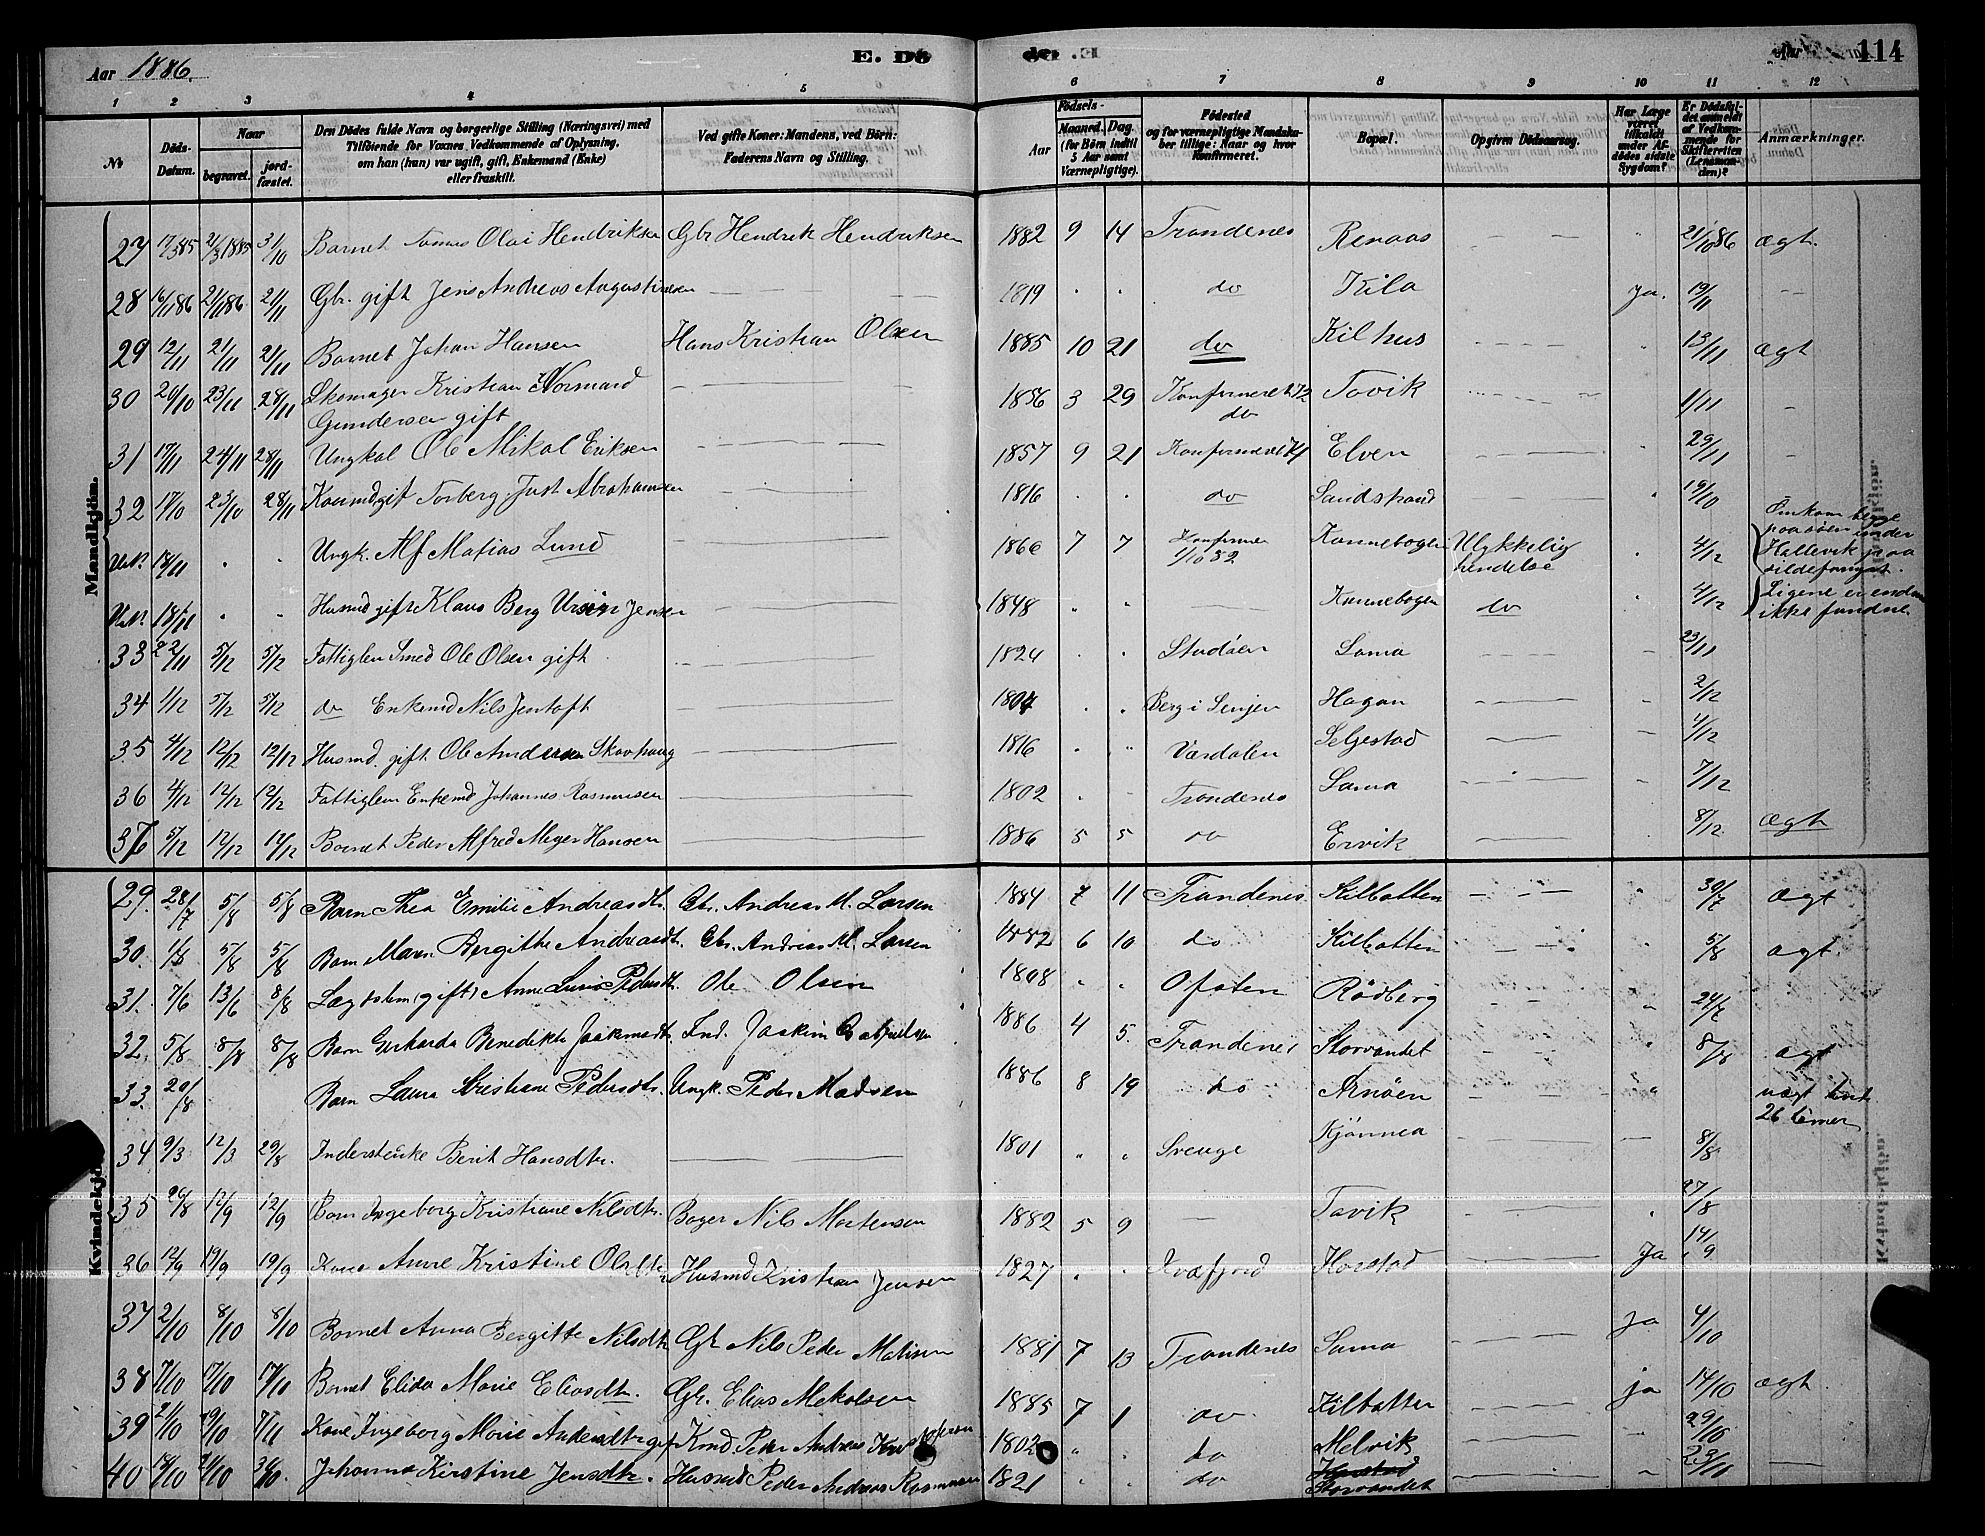 Aar 1886.
E. Dö
114
1 2 3 4 5 6 7 8 9 10 11 12
No
Döds-Datum.
Naar
begravet.
jordfæstet.
Den Dödes fulde Navn og borgerlige Stilling (Næringsvei) med
Tilföiende for Voxnes Vedkommende af Oplysning,
om han (hun) var ugift, gift, Enkemand (Enke)
eller fraskilt.
Ved gifte Koner: Mandens, ved Börn:
Faderens Navn og Stilling.
Födsels-
Aar
Maaned. Dag.
(for Börn indtil
5 Aar samt
Værnepligtige).
Födested
og for værnepligtige Mandskaber tillige: Naar og hvor
Konfirmeret.
Bopæl.
Opgiven Dödsaarsag.
Har Læge
været
tilkaldt
under Afdödes sidste
Sygdom?
Er Dödsfaldet anmeldt
af Vedkommende for
Skifteretten
(Lensmanden)?
Anmærkninger.
Mandkjön.
27 17/3 85 21/3 1885 31/10 Barnet Tomas Olai Hendriksen Gbr Hendrik Hendriksen 1882 9 14 Trondenes Renaas 21/10 86 ægt.
28 16/11 86 21/11 86 21/11 Gbr. gift Jens Andreas Augustinsen 1819 do Kila Ja. 19/11
29 12/11 21/11 21/11 Barnet Johan Hansen Hans Kristian Olsen 1885 10 21 do Kilhus 13/11 ægt
30 29/10 23/11 28/11 Skomager Kristian Normand
Gundersen gift 1856 3 29 Konfirmeret 72
do Tovik 1/11
31 17/11 24/11 28/11 Ungkal Ole Mikal Eriksen 1857 9 21 Konfirmeret 71 Elven 29/11
32 17/10 23/10 28/11 Torberg Just Abrahamsen 1816 do Sandstrand 19/10
18/11 Ungk. Alf Matias Lund 1866 7 7 Konfirmer
1/10 82 Kannebogen Ulykkelig
hendelse 4/12
Omkom begge
paa söen under
Hallevik paa
sildefangst.
Ligene er endnu
ikke fundne.
18/11 Husmd gift Klaus Berg Jensen 1848 Kannebogen do 4/12
33 22/11 5/12 5/12 Fattiglem Smed Ole Olsen gift 1824 Sama 23/11
34 1/12 5/12 5/12 do Enkemd Nils Jentoft 1804 Berg i Senjen Hagan 2/12
35 4/12 12/12 12/12 Husmd. gift Ole Andersen Skavhaug 1816 Værdalen Seljestad 4/12
36 4/12 12/12 12/12 Fattiglem Enkemd Johannes Rasmusen 1802 Trondenes Sama 7/12
37 5/12 12/12 12/12 Barnet Peder Alfred Meyer Hansen 1886 5 5 do Ervik 8/12 ægt
Kvindekjön.
29. 28/7 5/8 5/8 Barn Thea Emilie Andreasdtr. Gbr. Andreas M. Larsen 1884 7 11 Trondenes. Kilbotten 30/7 ægt
30. 1/8 5/8 5/8 Barn Maren Bergitte Andreasdtr. Gbr. Andreas M. Larsen 1882 6 10 do Kilbotten 5/8 ægt.
31. 7/6 13/6 8/8 Lægdslem (gift) Anne Pedersdtr. Ole Olsen 1808 Ofoten Rödberg 24/7
32. 5/8 8/8 8/8 Barn Gerharda Benedikte Joakimsdtr. Ind. Joakim 1886 4 5. Trondenes Storvandet 8/8 ægt
33. 20/8 Barn Laura Kristiane Pedersdtr. Ungk. Peder Madsen 1886 8 19 do Arnöen uægt
26 timer
34 9/3 12/3 29/8 Inderstenke Berit Hansdtr. 1801 Sverige Kjönnea 8/8
35 26/8 12/9 12/9 Barn Ingeborg Kristiane Nilsdtr. Bager Nils Mortensen 1882 5 9 Tovik 27/8
36 12/9 19/9 19/9 Kone Anne Kristine Olsdtr Husmd Kristian Jensen 1827 Kvæfjord Harstad Ja 14/9
37 2/10 8/10 8/10 Barnet Anna Bergitte Nilsdtr Gbr Nils Peder Matisen 1881 7 13 Trondenes Sama ja 4/10
38 7/10 17/10 17/10 Barnet Elida Marie Eliasdtr. Gbr. Elias Mekalsen 1885 7 1 do Kilbotten ja 14/10 ægt.
39 21/10 7/11 Kone Ingeborg Marie Andersdtr gif Kmd. Peder Andreas 1802 do Melvik
40 Johanna Kirstine Jensdtr. Husmd Peder Andreas Rasmusen 1821 do Storvandet 23/11